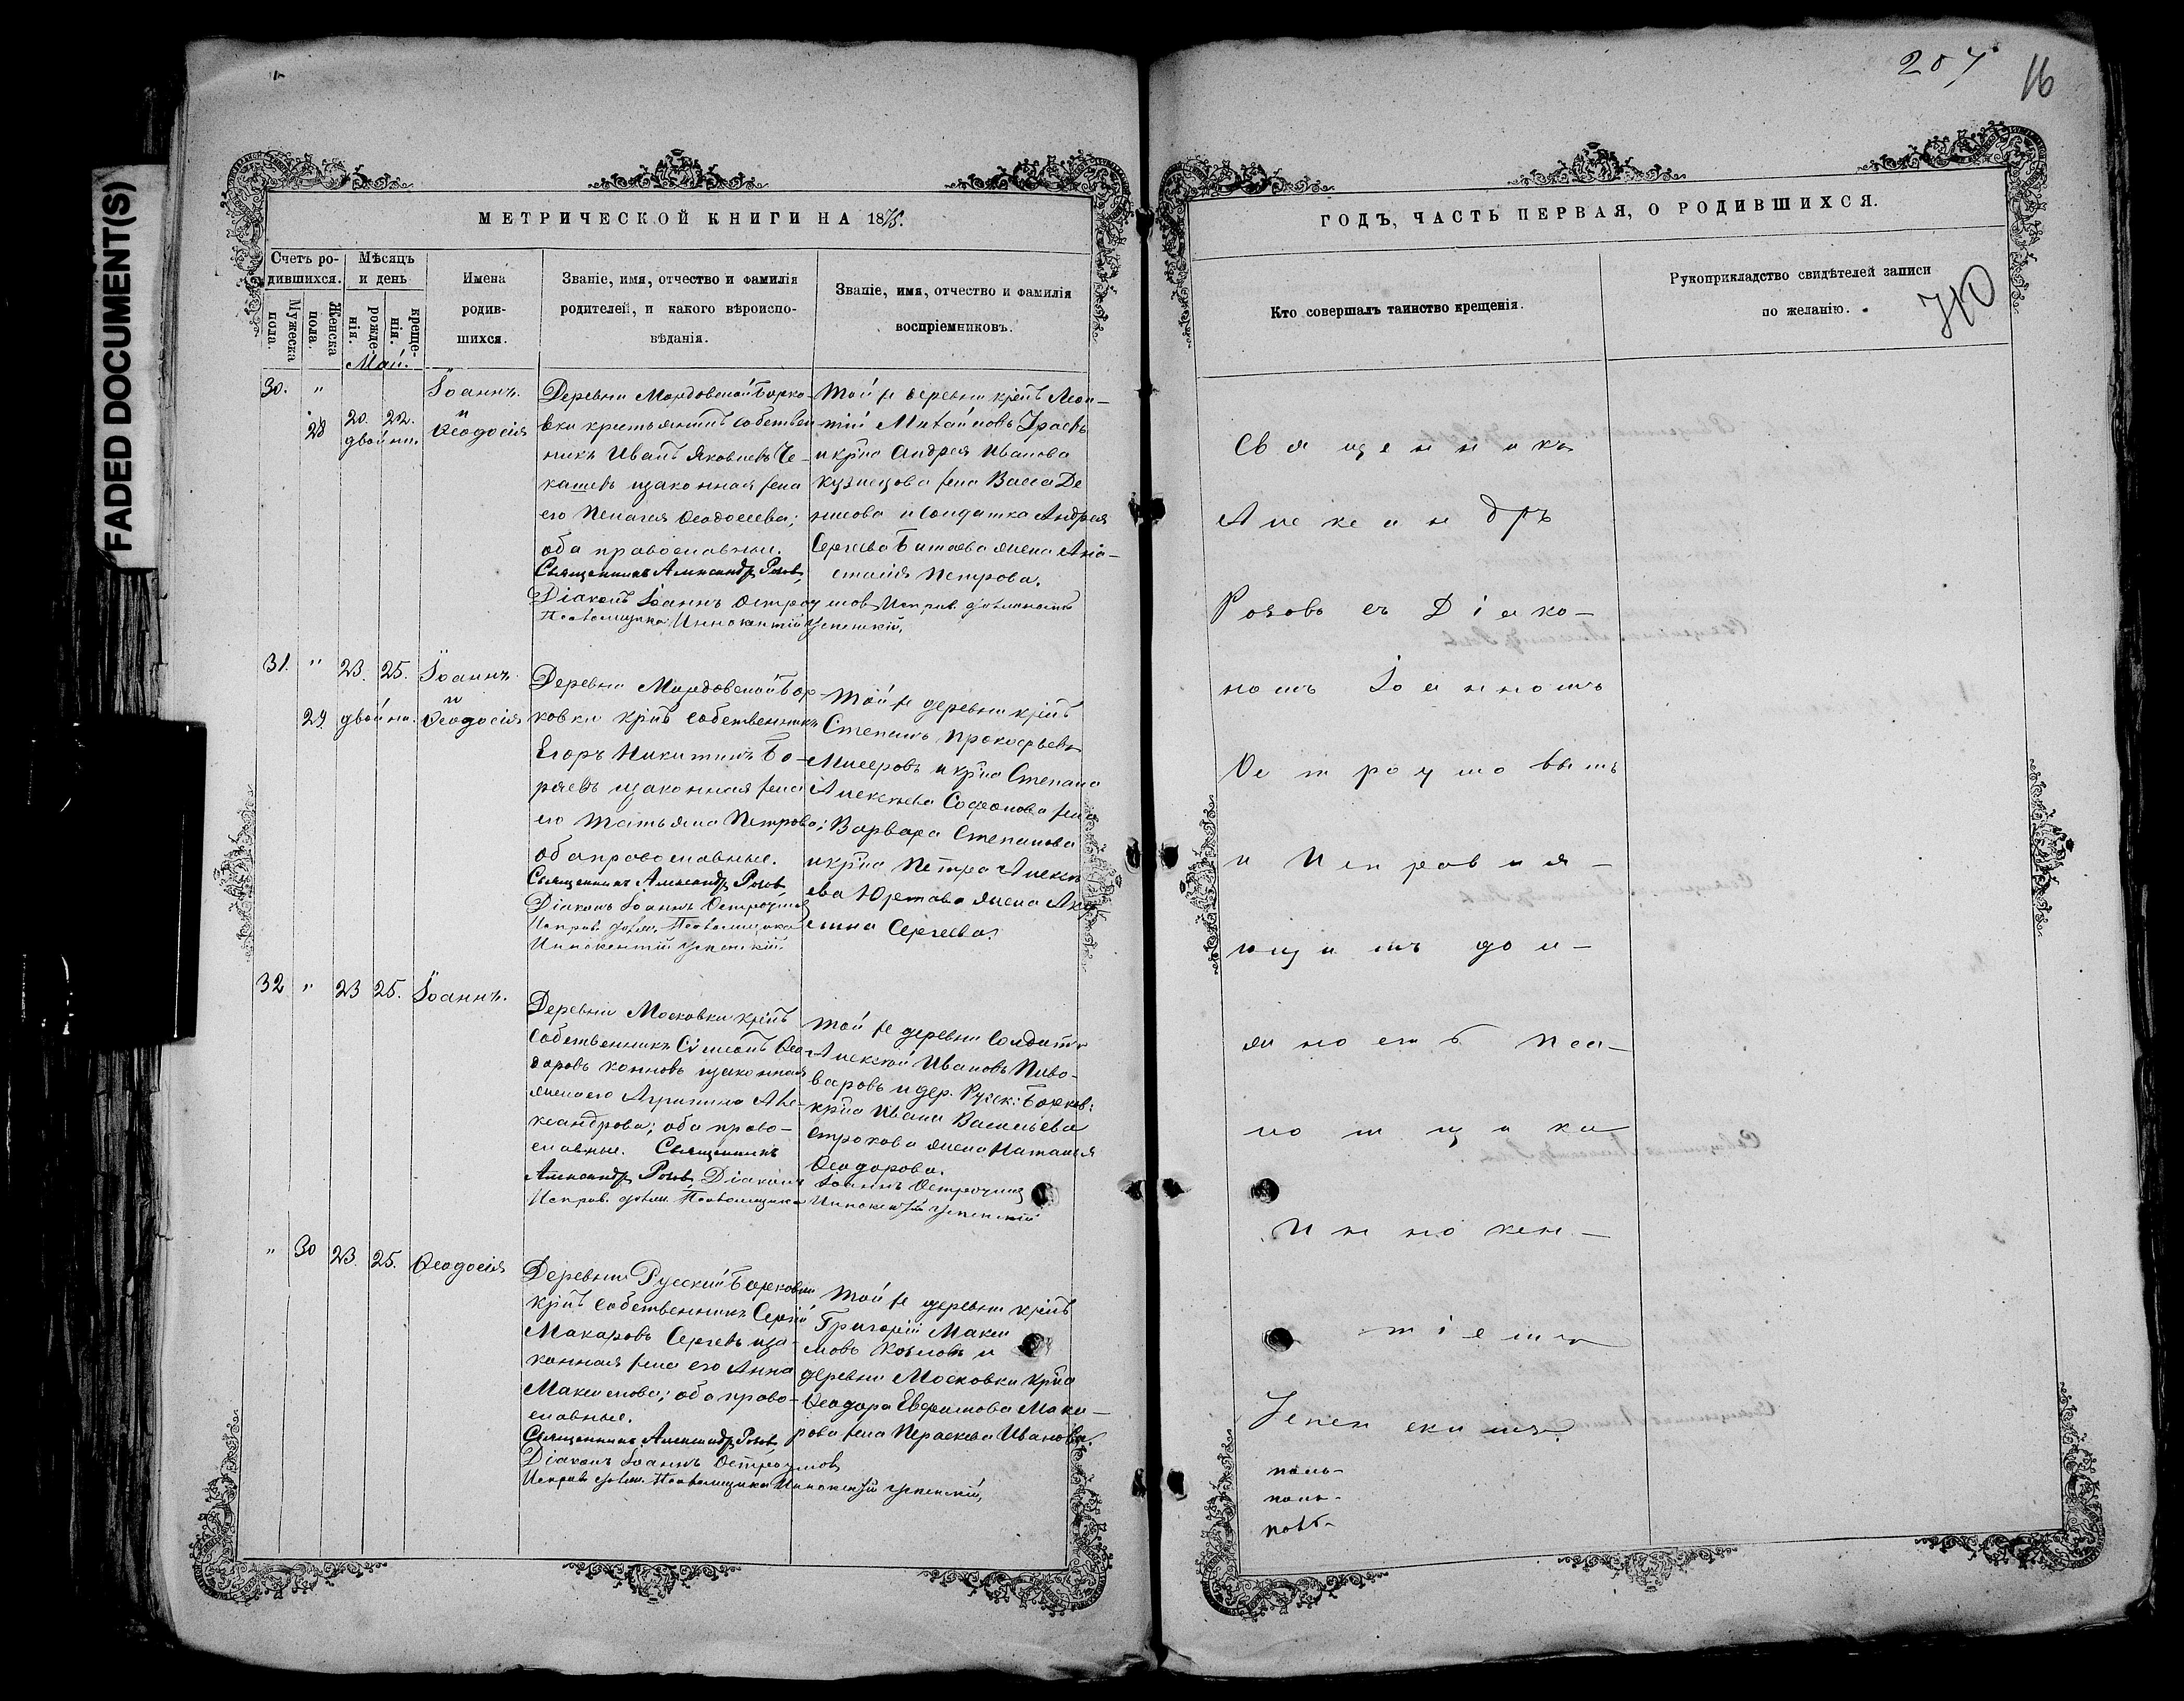 FADED DOCUMENT(S)
МЕТРИЧЕСКОЙ КНИГИ НА 1875.
Счетъ ро-
дившихся.
Мужеска
пола.
Женска
пола.
Мѣсяцъ
и день
рожде
нія.
креще-
нія.
Имена
родив-
шихся.
Званіе, имя, отчество и фамилія
родителей, и какого вѣроиспо-
вѣданія.
Званіе, имя, отчество и фамилія
воспріемниковъ.
Май.
30. "
28
20. 22.
двойни.
Іоаннъ.
и
Ѳеодосія
Деревни Мордовской Борко-
вки крестьянинъ собствен
никъ Иванъ Яковлевъ Че-
кашевъ изаконная жена
его Пелагія Ѳеодосеева;
оба православные.
Священникъ Александръ Розовъ
Діаконъ Іоаннъ Остроумовъ Исправ. должность
Псаломщика Иннокентій Успенскій.
Той же деревни крѣнъ Леон-
тій Михайловъ
и крѣна Андрея Иванова
Кузнецова жена Васса Де
нисова и солдатка Андрея
Сергѣева жена Ана-
стасія Петрова.
31. "
29
23. 25.
двойни.
Іоаннъ.
и
Ѳеодосія
Деревни Мордовской Бор-
ковки крѣнъ собственникъ
Егоръ Никитинъ Бо-
ряевъ изаконная жена
его Татьяна Петрова;
оба православные.
Священникъ Александръ Розовъ
Діаконъ Іоаннъ Остроумовъ
Исправ. должн. Псаломщика
Иннокентій Успенскій.
Той же деревни крѣнъ
Степанъ Прокофьевъ
и крѣна Степана
Алексѣева Софронова жена
Варвара Степанова
и крѣна Петра Алексѣ
ева Юртаева жена Аку
лина Сергѣева.
32 " 23 25. Іоаннъ.
Деревни Московки крѣнъ
Собственникъ Сѵмеонъ Ѳео-
доровъ Конновъ изаконная
жена его Агрипина Але-
ксандрова; оба право-
славные. Священникъ
Александръ Розовъ Діаконъ Іоаннъ Остроумовъ
Исправ. должн. Псаломщика Иннокентій Успенскій
Той же деревни Солдатъ
Алексѣй Ивановъ Пиво-
варовъ и дер. Русск: Борков:
крѣна Ивана Васильева
Строкова жена Наталья
Ѳеодорова.
" 30 23. 25. Ѳеодосія
Деревни Русской Борковки
крѣнъ собственникъ Сергій
Макаровъ Сергѣевъ иза-
конная жена его Анна
Максимова; оба право-
славные.
Священникъ Александръ Розовъ
Діаконъ Іоаннъ Остроумовъ
Исправ. должн. Псаломщика Иннокентій Успенскій.
Той же деревни крѣнъ
Григорій Макси
мовъ Козловъ и
деревни Московки крѣна
Ѳеодора Евфимова Мака-
рова жена Параскева Иванова.
207
16
ГОДЪ, ЧАСТЬ ПЕРВАЯ, О РОДИВШИХСЯ.
Кто совершалъ таинство крещенія.
Рукоприкладство свидѣтелей записи
по желанію.
Священникъ
Александръ
Розовъ съ Діако-
номъ Іоанномъ
Остроумовымъ
и Исправля-
ющимъ дол-
жность Пса-
ломщика
Иннокен-
тіемъ
Успенскимъ.